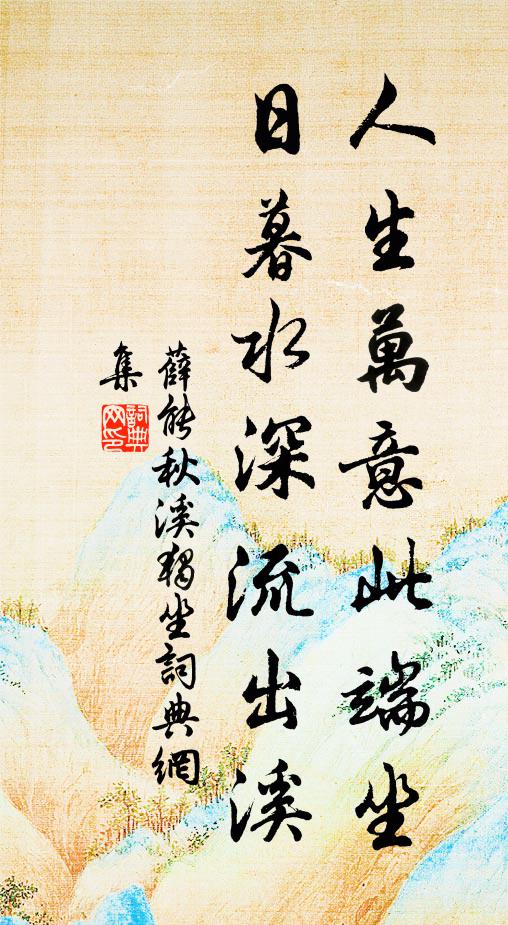 人生萬意此端坐
日暮水深流出溪
薛能秋溪獨坐詞典網
集
詞典網印